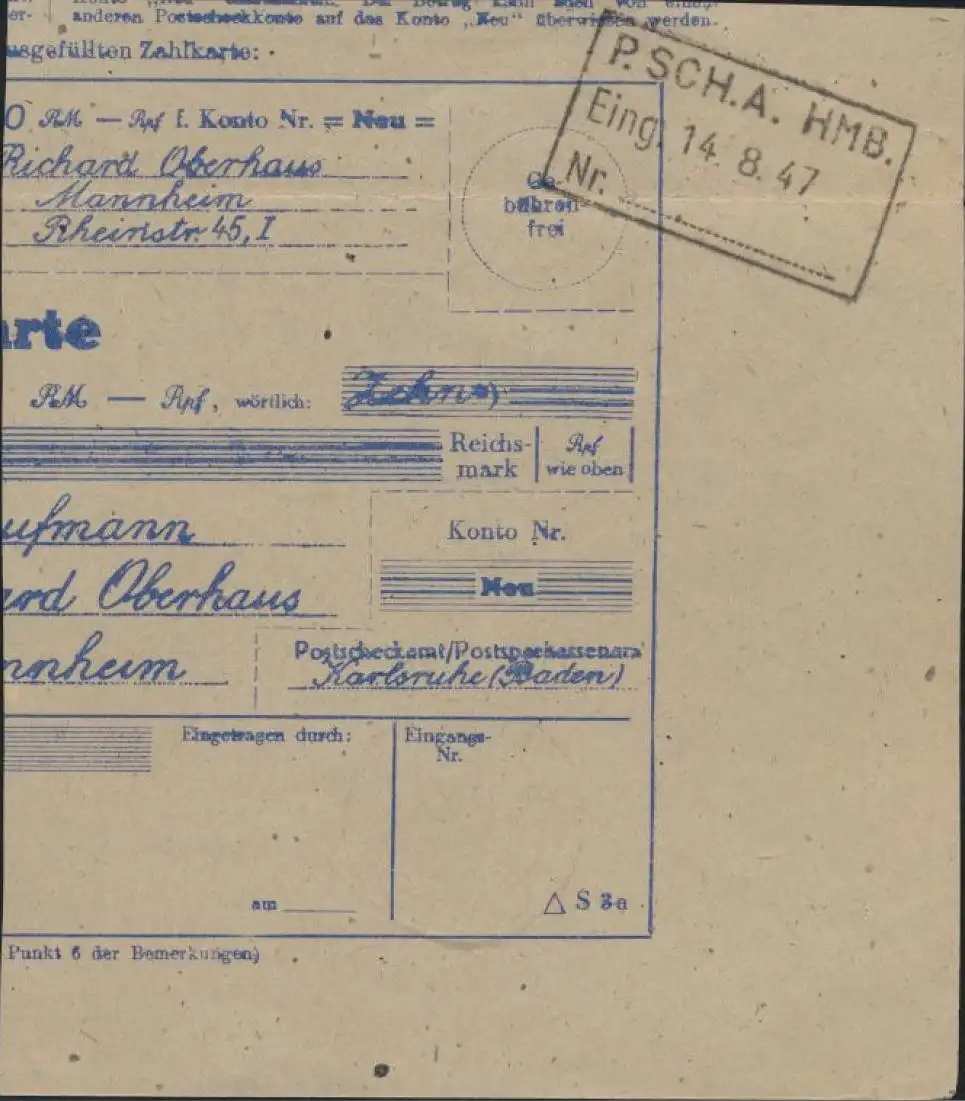 anderen Postscheckkonto auf das Konto „Neu" überwiesen werden.
usgefüllten Zahlkarte:
P. SCH. A. HMB.
Eing. 14. 8. 47
Nr.
0 RM — Rpf f. Konto Nr. = Neu =
Richard Oberhaus
Mannheim
Rheinstr. 45, I
Ge-
bühren-
frei
arte
RM — Rpf, wörtlich: Zehn
Reichs-
mark
Rpf
wie oben
ufmann
ard Oberhaus
nnheim
Konto Nr.
Neu
Postscheckamt/Postsparkassenamt
Karlsruhe (Baden)
Eingetragen durch:
Eingangs-
Nr.
am
△ S 3a
Punkt 6 der Bemerkungen)